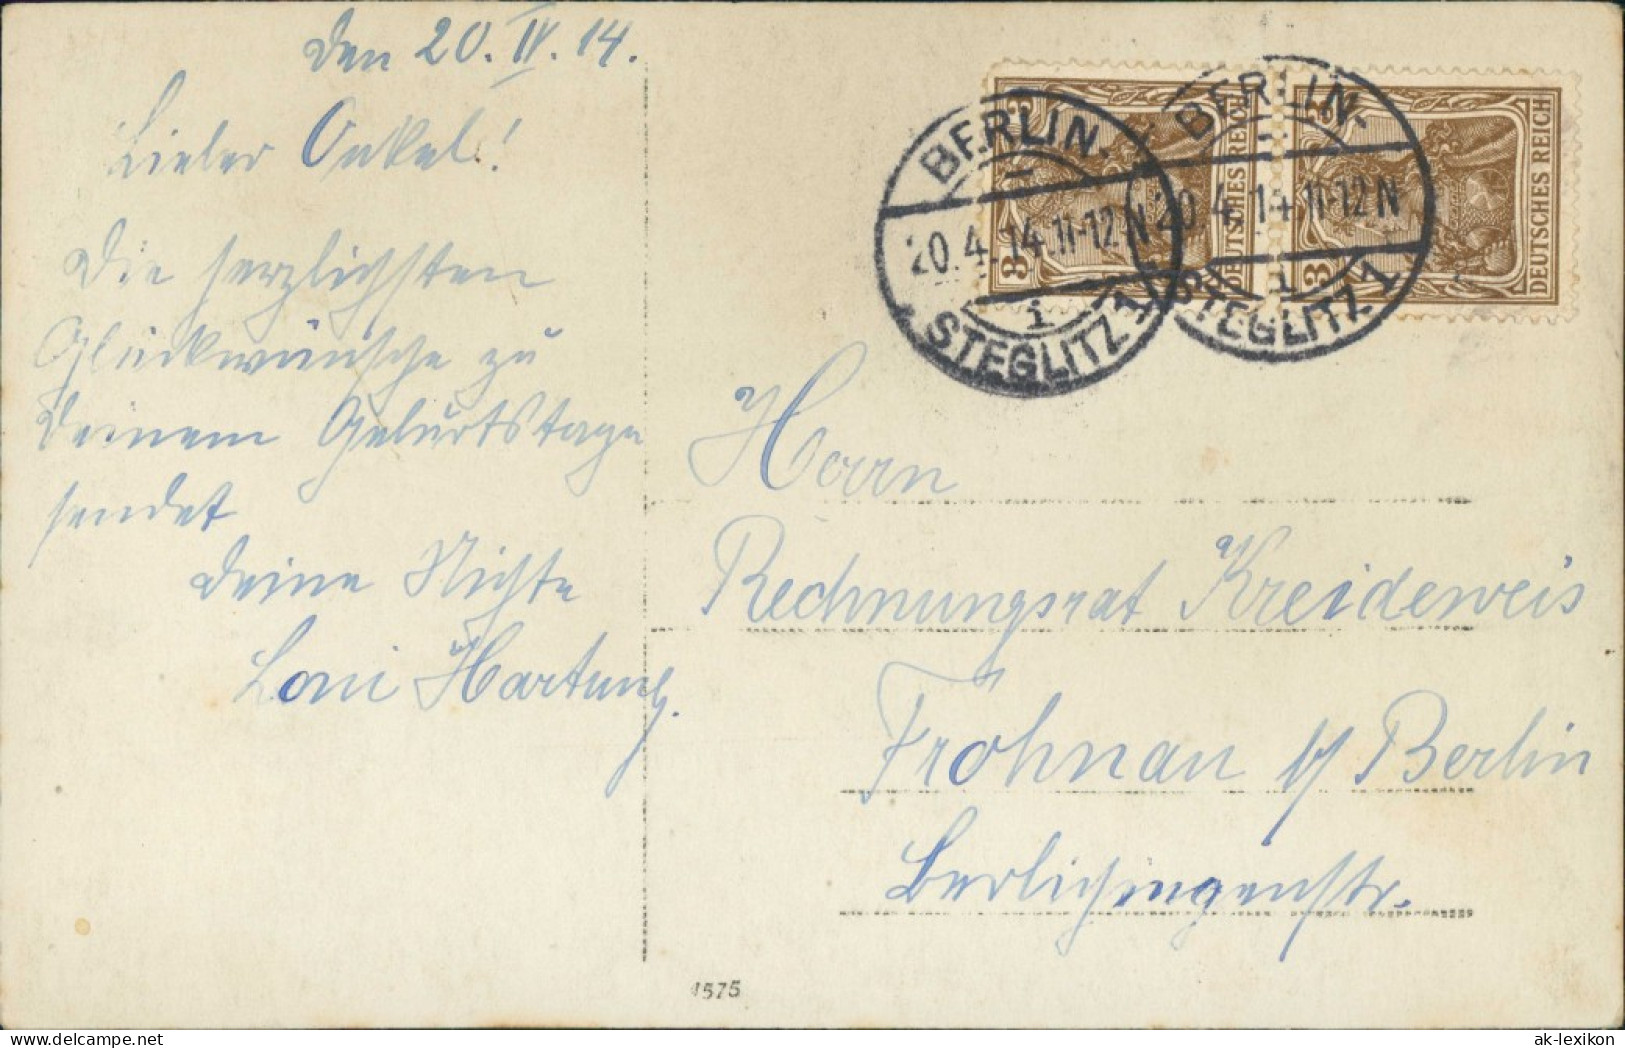 den 20. IV. 14.
Lieber Onkel!
Die herzlichsten
Glückwünsche zu
Deinem Geburtstage
sendet
deine Nichte
Loni Hartung.
BERLIN-
20.4.14.11-12N
i
STEGLITZ 1
BERLIN-
20.4.14.11-12N
i
STEGLITZ 1
3
3
DEUTSCHES REICH
3
3
DEUTSCHES REICH
Herrn
Rechnungsrat Kreideweis
Frohnau b/ Berlin
Berlichingenstr.
1575
© ak-ansichtskarten.de
ak-lexikon